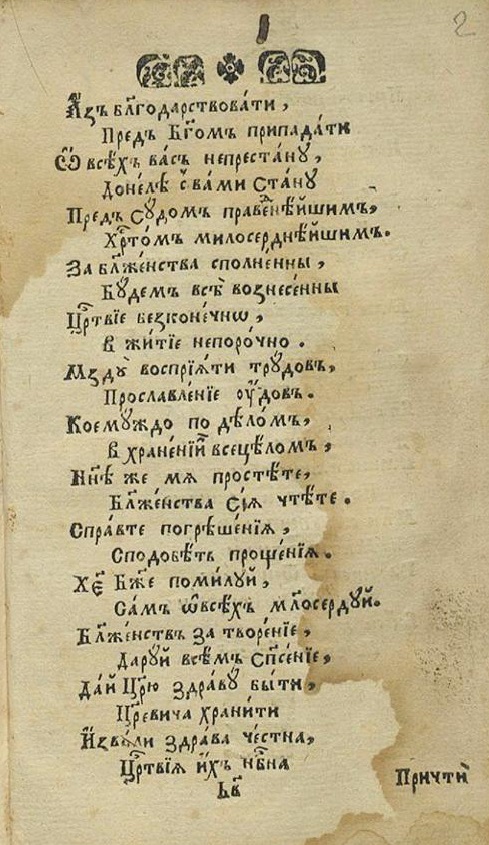 2
А҆́зъ бл҃года́рствовати,
Пре́дъ Бг҃омъ припада́ти
Ѿ всѣ́хъ ва́съ непреста́нꙋ,
До́нелѣ с̾ ва́ми Ста́нꙋ
Пре́дъ Сꙋдо́мъ пра́веннѣ́йшимъ,
Хрⷭ҇то́мъ милосе́рднѣ́йшимъ.
За бл҃же́нства сполне́нны,
Бꙋ́демъ всѣ̀ вознесе́нны
Црⷭ҇твїе безконе́чнѡ,
в жи́тїе непоро́чно.
Мздꙋ̀ воспрїѧ́ти трꙋдо́въ,
Просла́вленїе ᲂу҆́довъ.
Коемꙋ́ждо по дѣло́мъ,
в хране́нїи всецѣ́ломъ,
Нн҃ѣ же мѧ просте́те,
Бл҃же́нства Сїѧ̀ чте́те.
Спра́вте погрѣше́нїѧ,
Сподобѣ́тъ проще́нїѧ.
Хе҃ Бж҃е поми́лꙋй,
Са́мъ ѿ всѣ́хъ млⷭ҇осе́рдꙋй.
Бл҃же́нствъ за творе́нїе,
Дарꙋ́й всѣ́мъ сп҃се́нїе,
Да́й Цр҃ю здра́вꙋ бы́ти,
Цр҃евича храни́ти
И҆зво́ли здра́ва че́стна,
Црⷭ҇твїѧ и҆́хъ нбⷭ҇на
Причти́